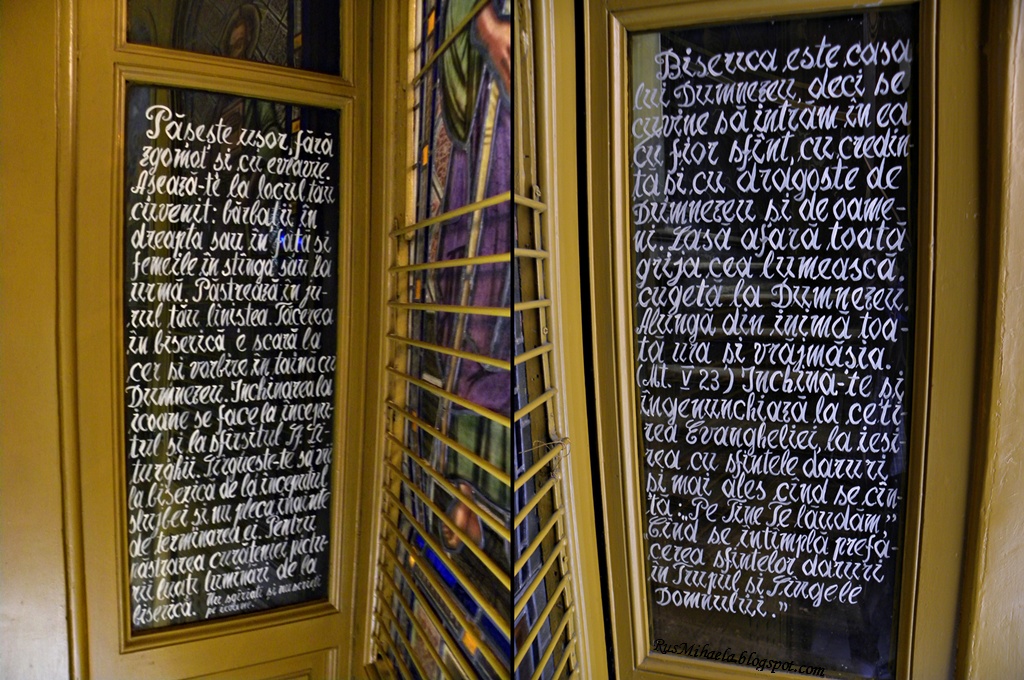 Pășește ușor, fără
zgomot, și cu evlavie.
Așează-te la locul tău
cuvenit: bărbații în
dreapta sau în față și
femeile în stînga sau la
urmă. Păstrează în ju-
rul tău liniștea. Tăcerea
în biserică e scară la
cer și vorbire în taină cu
Dumnezeu. Închinarea la
icoane se face la începu-
tul și la sfîrșitul Sf. Li-
turghii. Sîrguește-te să vii
la biserică de la începutul
slujbei și nu pleca înainte
de terminarea ei. Pentru
păstrarea curățeniei pictu-
rii luați lumînări de la
biserică. Nu zgîriați și nu scrieți
pe icoane.
Biserica este casa
lui Dumnezeu, deci se
cuvine să intrăm în ea
cu fior sfînt, cu credin-
ță și cu dragoste de
Dumnezeu și de oame-
ni. Lasă afară toată
grija cea lumească.
cugetă la Dumnezeu.
Alungă din inimă toa-
ta ura și vrăjmășia.
(Mt. V 23) Închină-te și
îngenunchiază la ceti
rea Evangheliei, la ieși
rea cu sfintele daruri
și mai ales cînd se cîn-
tă: „Pe Tine Te lăudăm”
Cînd se întîmplă prefă-
cerea sfintelor daruri
în Trupul și Sîngele
Domnului.”
RusMihaela.blogspot.com